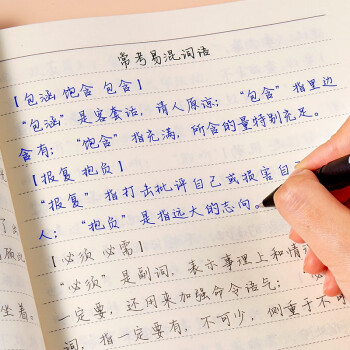 常考易混词语
【包涵 饱含 包含】
“包涵”是客套话，请人原谅；“包含”指里边
含有；“饱含”指充满，所含的量特别充足。
【报复 抱负】
“报复”指打击批评自己或损害自己
人；“抱负”是指远大的志向。
【必须 必需】
“必须”是副词，表示事理上和情
一定要，还用来加强命令语气；
词，指一定要有，不可少，侧重于不可
坐着。